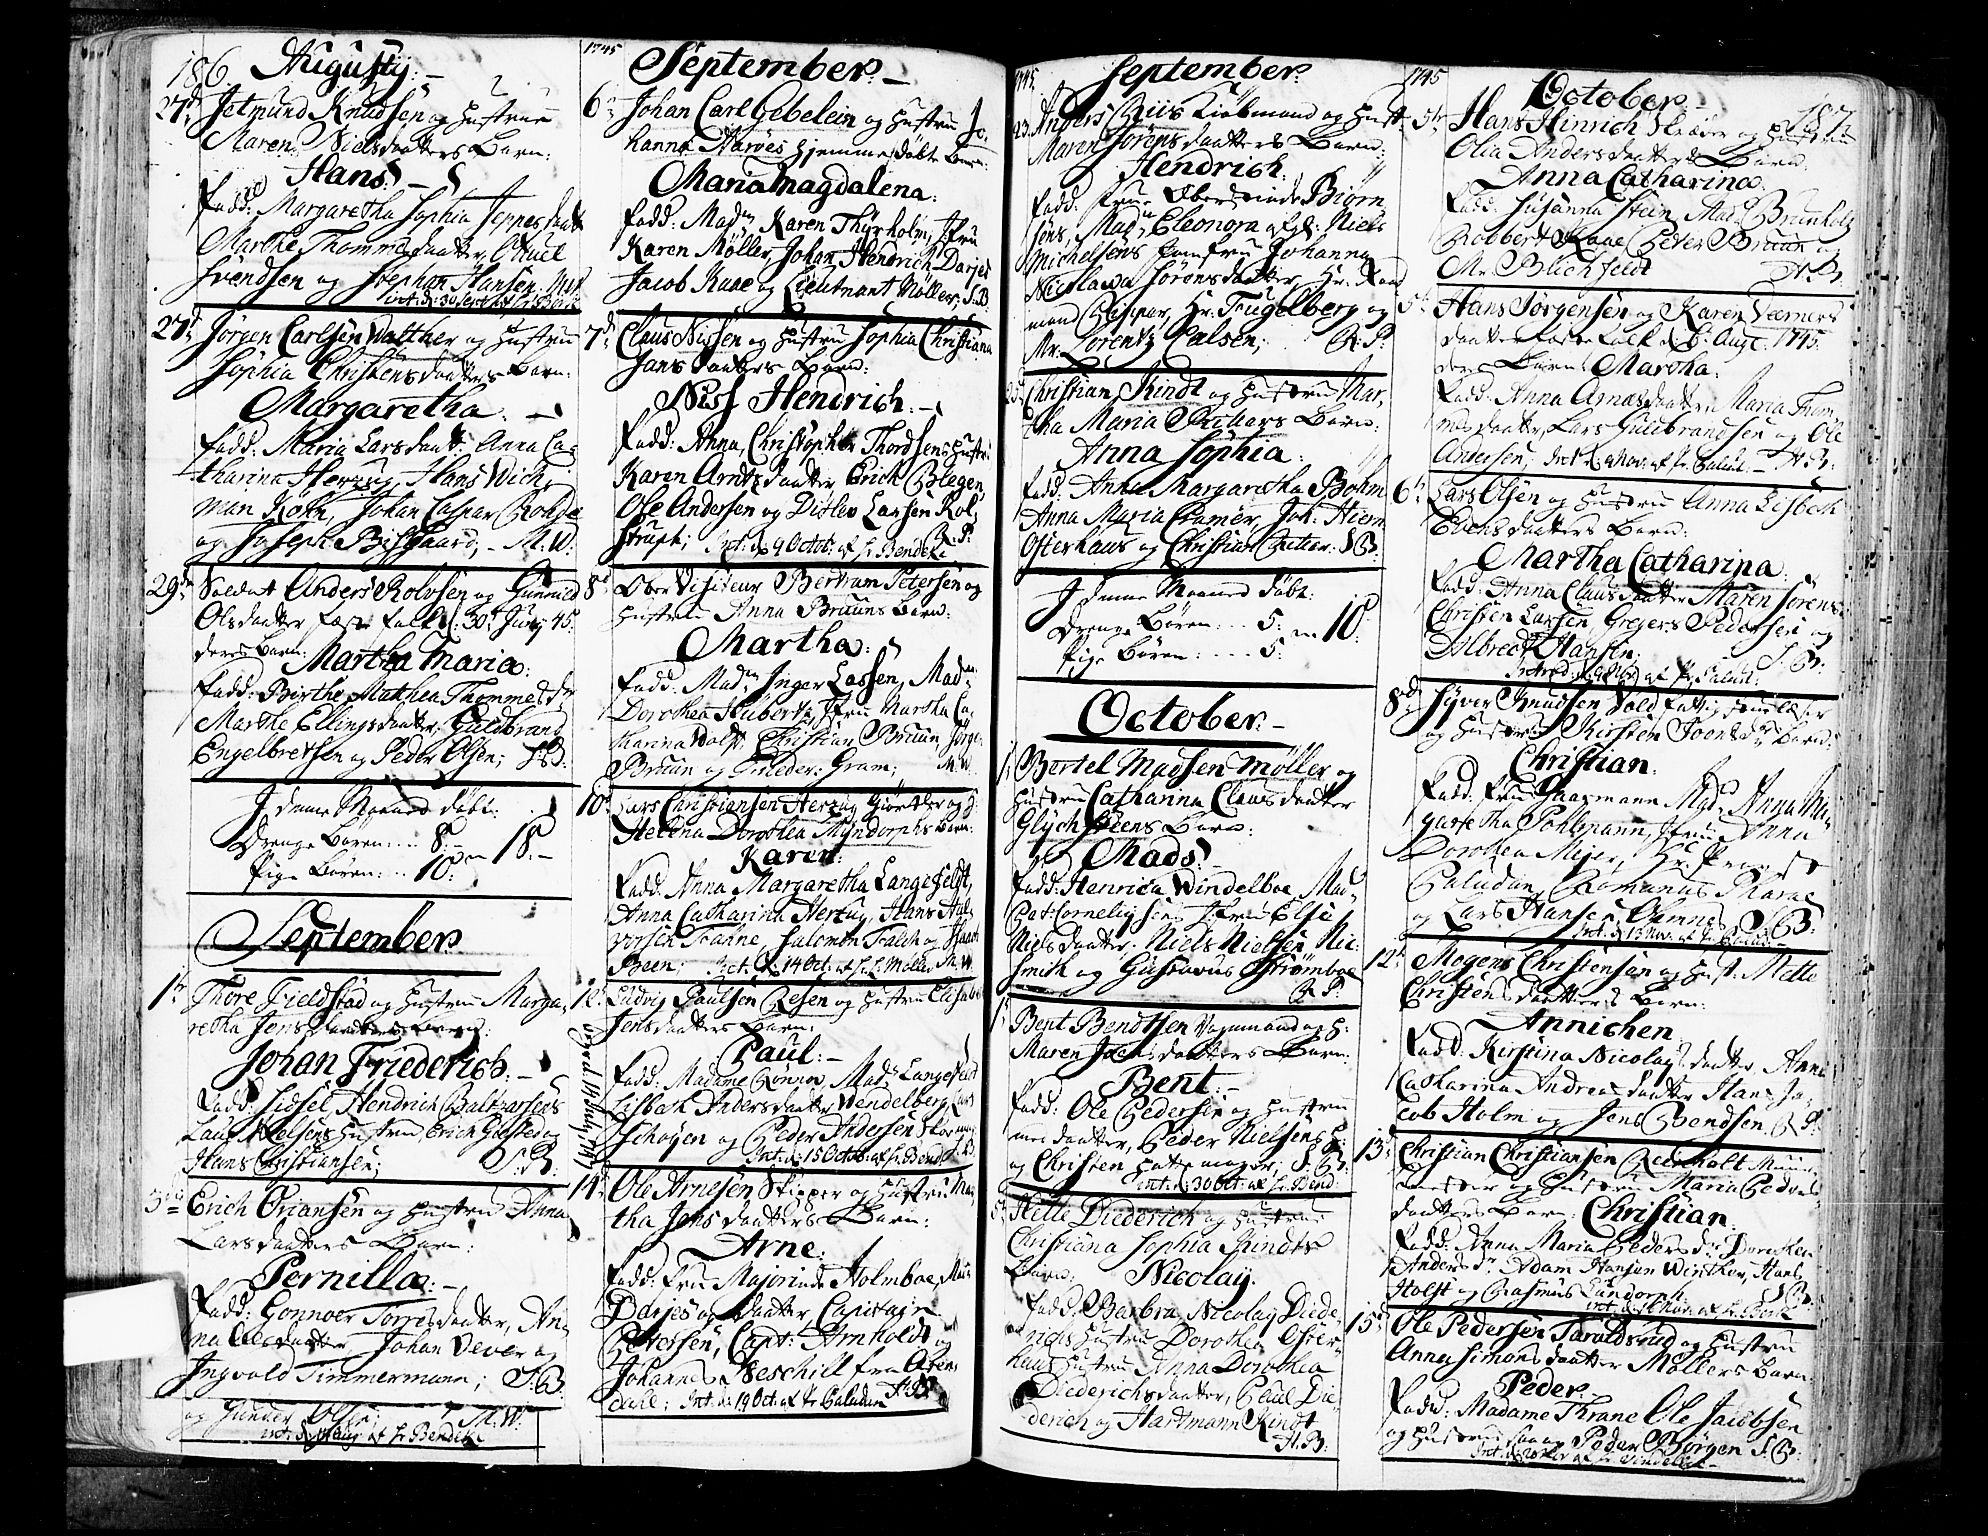 186. Augusty: –
27d Jetmund Knudsen og Hustrue
Maren Nielsdaatters Barn:
Hans: –
Fadd: Margaretha Sophia Jeppesdaatt
Marthe Thommesdaatter,
Svendsen og Stephan Hansen.
27d Jörgen Carlsen Walther og Hustru
Sophia Christensdaatters Barn:
Margaretha: –
Fadd: Maria Larsdaatt: Anna Ca-
tharina Herzug, Hans Wich-
man Kohn, Johan Caspar Rohde
og Joseph Bisgaard, – M: W:
29de Soldat Anders Rolvsen og Gunnild
Olsdaatter fæste folk d: 30t Juny 45.
deres Barn: Martha Maria:
Fadd: Birthe Mathea Thommesdr
Marthe Ellingsdaatter, Guldbrand
Engelbretsen og Peder Olsen;
I denne Maaned döbt:
Drenge Børen: ... 8: –
Pige Børen: .. 10: – 18: –
September
1te Thore Fieldstad og Hustrue Marga-
retha Jensdaatters Barn:
Johan Friederich: –
Fadd: Sidsel Hendrich Baltzarsens
Hustrue Erich Giested og
Hans Christiansen; S: B:
3die Erich Ariansen og Hustrue Anna
Larsdaatters Barn:
Pernilla: –
Fadd: Gonnoer Torresdaatter, An-
na Olesdaatter, Johan Vever og
Ingvold Timmermann; S: B:
og Gunder Olsen; M: W:
1745 September –
6te Johan Carl Gebelein og Hustrue Jo-
hanna Harboes hjemmedöbte Barn:
Maria Magdalena:
Fadd: Madm Karen Thyrholm, Jfru
Karen Möller, Johan Hendrich Darjes
Jacob Kaae og Lieutnant Möller: S: B:
7de Claus Nissen og Hustru Sophia Christiana
Jansdaatters Barn:
Niss Hendrich: –
Fadd: Anna, Christopher Thordsens Hustr:
Karen Arntzdaatter, Erich Blegen,
Ole Andersen og Ditlev Larsen Rol-
strup; Int: d: 9 Octob: af Hr Bendeke R: P:
8de Ober Visiteur Bertram Petersen og
Hustrue Anna Bruuns Barn:
Martha:
Fadd: Madm Inger Lassen, Madm
Dorothea Huberts, Jfru Martha Ca-
tharina Wolff, Christian Bruun, Jörgen
Bruun og Frieder: Gram; M: W:
10d Lars Christiansen Herzug Giørtler og H:
Helena Dorothea Myndorphs Barn:
Karen:
Fadd: Anna Margaretha Langefeldt,
Anna Catharina Herzug, Hans Hal-
vorsen Trahne, Salomon Falch og Isaach
Been; Int: d: 14 Oct: af Hr. S: Möller M: W:
12t Ludvig Paulsen Resen og Hustru Elisabet
Jensdaatters Barn:
Paul: –
Fadd: Madame Rönnov, Madm Langefeldt
Lisbeth Andersdaatter Wendelberg, Lars
Schöyen og Peder Andersen Skomag:
Int: d: 15 Octob: af Hr Bend:
14d Ole Arnesen Skipper og Hustru Mar-
tha Jensdaatters Barn:
Arne:
Fadd: Fru Majorinde Holmboe, Mad:
Darjes og Daatter, Capitain
Petersen, Capt: Arnholdt og
Johannes Neschill fra Aren-
dahl; Int: d: 19 Oct: af Hr Paludan
1745. September
23. Anders Riis Kiøbmand og Hust:
Maren Sörensdaatters Barn:
Hendrich:
Fadd: Frue Oberstinde Biörn-
sens, Madm Eleonora afg: Niels
Michelsens, Jomfru Johanna
Nicolawa Sörensdaatter, Hr. Raad-
mand Reispar, Hr. Fugelberg og
Mr. Lorentz Calsen; R: P:
Christian Kindt og Hustrue Mar-
tha Maria Richters Barn:
Anna Sophia:
Fadd: Anna Margaretha Böhm
Anna Maria Cramer, Joh: Hierm
Osterhaus og Christian Richter. S: B:
I denne Maaned döbt:
Drenge Börn: .. 5: – 10:
Pige Börn: .... 5:
October –
1t Bertel Madsen Möller og
Hustru Catharina Clausdaatter
Glychsteens Barn:
Mads: –
Fadd: Henrica Windelboe, Mad:
Jfru Else
Nielsdaatter, Niels Nielsen
Smith og Gustavus Strömboe
R: P:
Bent Bendtsen Vognmand og H:
Maren Jochumsdaatters Barn:
Bent: –
Fadd: Ole Pedersen og Hustru
med daatter, Peder Nielsens H:
og Christen Hattemager; S: B:
Int: d: 30 Oct: af Hr Bend:
Helle Diederich og Hustrue
Christiana Sophia Kindts
Barn: Nicolay:
Fadd: Barbra, Nicolay Diede-
richs Hustru Dorothea Oster-
haus Hustru Anna Dorothea
Diederichsdaatter, Paul Die-
derich og Hartmann Kindt
H: B:
1745 October – 187.
5te Hans Hinrich Skræder og Hustru
Olia Andersdaatters Barn:
Anna Catharina:
Fadd: Susanna Stein, Madm Brunholtz
Robbert Kaae Peter Bruun og
Mr Blichfeldt H: B:
5te Hans Jörgensen og Karen Værners-
daatter fæste folk d: 6: Augt. 1745.
deres Barn: Martha:
Fadd: Anna Arnesdaatter, Maria Thom-
mesdaatter, Lars Guldbrandsen og Ole
Andersen; Int: d: 9 Nov: af Hr. Palud: – H: B:
6te Lars Olsen og Hustru Anna Lisbeth
Evensdaatters Barn:
Martha Catharina:
Fadd: Anna Clausdaatter, Maren Sörens:
Christen Larsen, Gregers Pedersen og
Albrect Hansen; S: B:
8de Syver Knudsen Vold fattig
og Hustrue Kirsten Toensdr Barn:
Christian:
Fadd: Fru Haagmann, Madm Anna Mar-
garetha Pohlmann, Jfru Anna
Dorothea Mejer, Hr. Provst
Paludan, Romanus Tharae
og Lars Hansen Aamne S: B:
Int: d: 13 Nov: af Hr Palud: –
12te Mogens Christensen og Hust: Mette
Christensdaatters Barn:
Annichen
Fadd: Kirstina Nicolaysdaatter, Anna
Catharina Andreasdaatter, Hans Ja-
cob Holm og Jens Svendsen. R: P:
13d Christian Christiansen Reinholt Muur-
mester og Hustrue Maria Peders-
daatters Barn: Christian:
Fadd: Anna Maria Pedersdr Dorothea
Andersdr Adam Hansen Winther, Hans
Holst og Rasmus Lundorph: S: B:
15d Ole Pedersen Taraldsrud og Hustru
Anna Simonsdaatter Möllers Barn
Peder: –
Fadd: Madame Thrane Ole Jacobsen
og Hustrue samt Peder Börgen S: B: